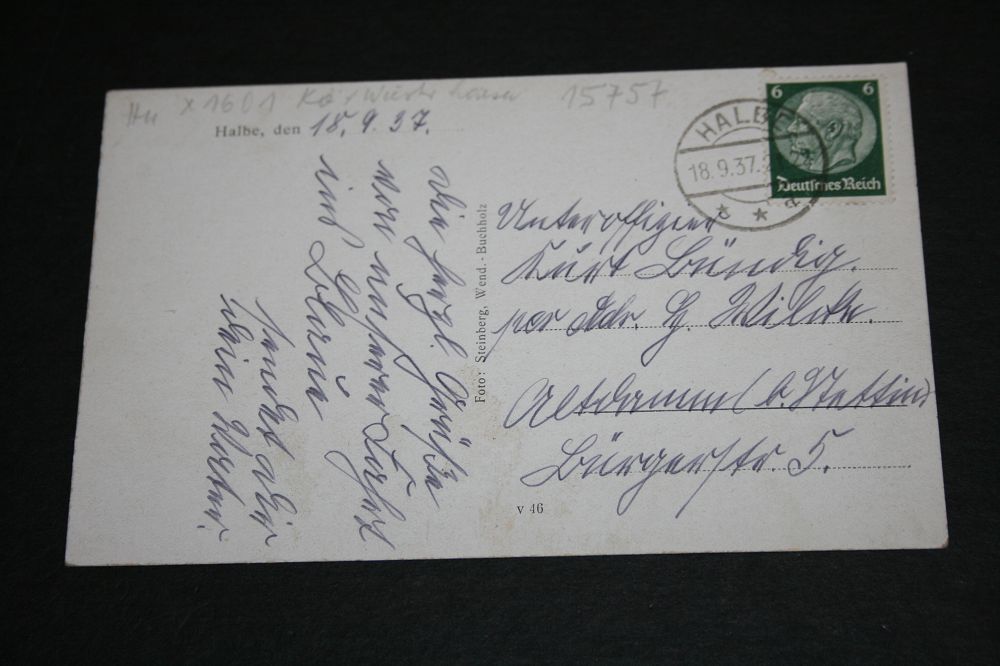 x 1601 15757
Halbe, den 18.9.37.
Die herzl. Grüße
von unserer Fahrt
ins Blaue
sendet Dir
Dein Vater.
Foto: Steinberg, Wend.-Buchholz
v 46
HALBE
18.9.37.
6 6
Deutsches Reich
Unteroffizier
Kurt Bündig.
per Adr. H. Wilcke.
Altdamm (b. Stettin)
Bürgerstr. 5.